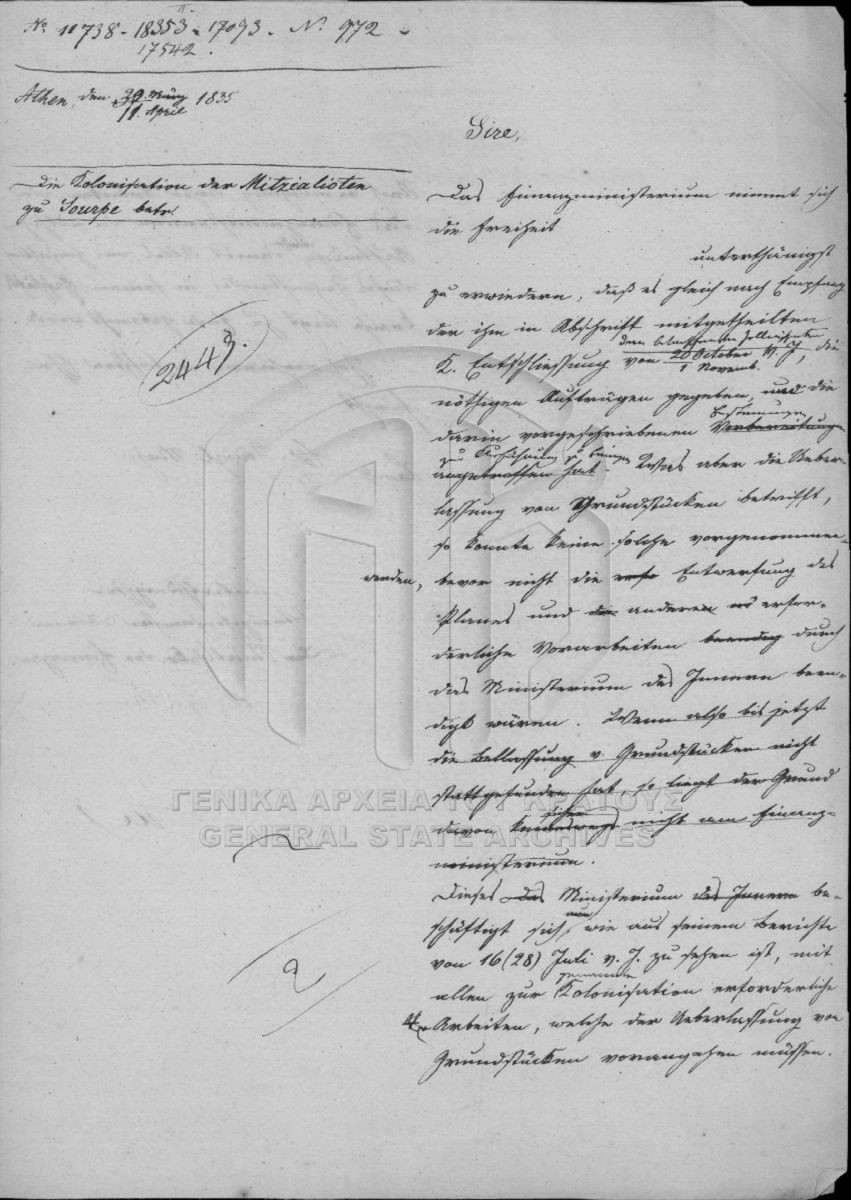 No 11738 - 18353 - 17093. - N. 972
17542.
Athen, den 30. März 1835
11. April
Sire,
Die Kolonisation der Mitzialioten
zu Sourpe betr.
Das Finanzministerium nimmt sich
die Freiheit
unterthänigst
zu erwiedern, daß es gleich nach Empfang
der ihm in Abschrift mitgetheilten
K. Entschliessung von 20 October v. J., die
1 Novemb.
nöthigen Aufträgen gegeben, und die
Bestimmungen
darin vorgeschriebenen Vorbereitungen
zur Ausführung zu bringen
angetroffen hat. Was aber die Ueber-
lassung von Grundstücken betrifft,
so konnte keine solche vorgenommen
werden, bevor nicht die Entwerfung des
Planes und die anderen erfor-
derliche Vorarbeiten beendig durch
das Ministerium des Innern been-
digt wären. Wenn also bis jetzt
die v. Grundstücken nicht
stattgefunden hat, so liegt der Grund
davon keineswegs nicht am Finanz-
ministerium.
Dieses das Ministerium des Innern be-
schäftigt sich, wie aus seinem Berichte
von 16 (28) Juli v. J. zu sehen ist, mit
allen zur Kolonisation erforderliche
Arbeiten, welche der Ueberlassung von
Grundstücken vorangehen müssen.
2443.
2
ΓΕΝΙΚΑ ΑΡΧΕΙΑ ΤΟΥ ΚΡΑΤΟΥΣ
GENERAL STATE ARCHIVES